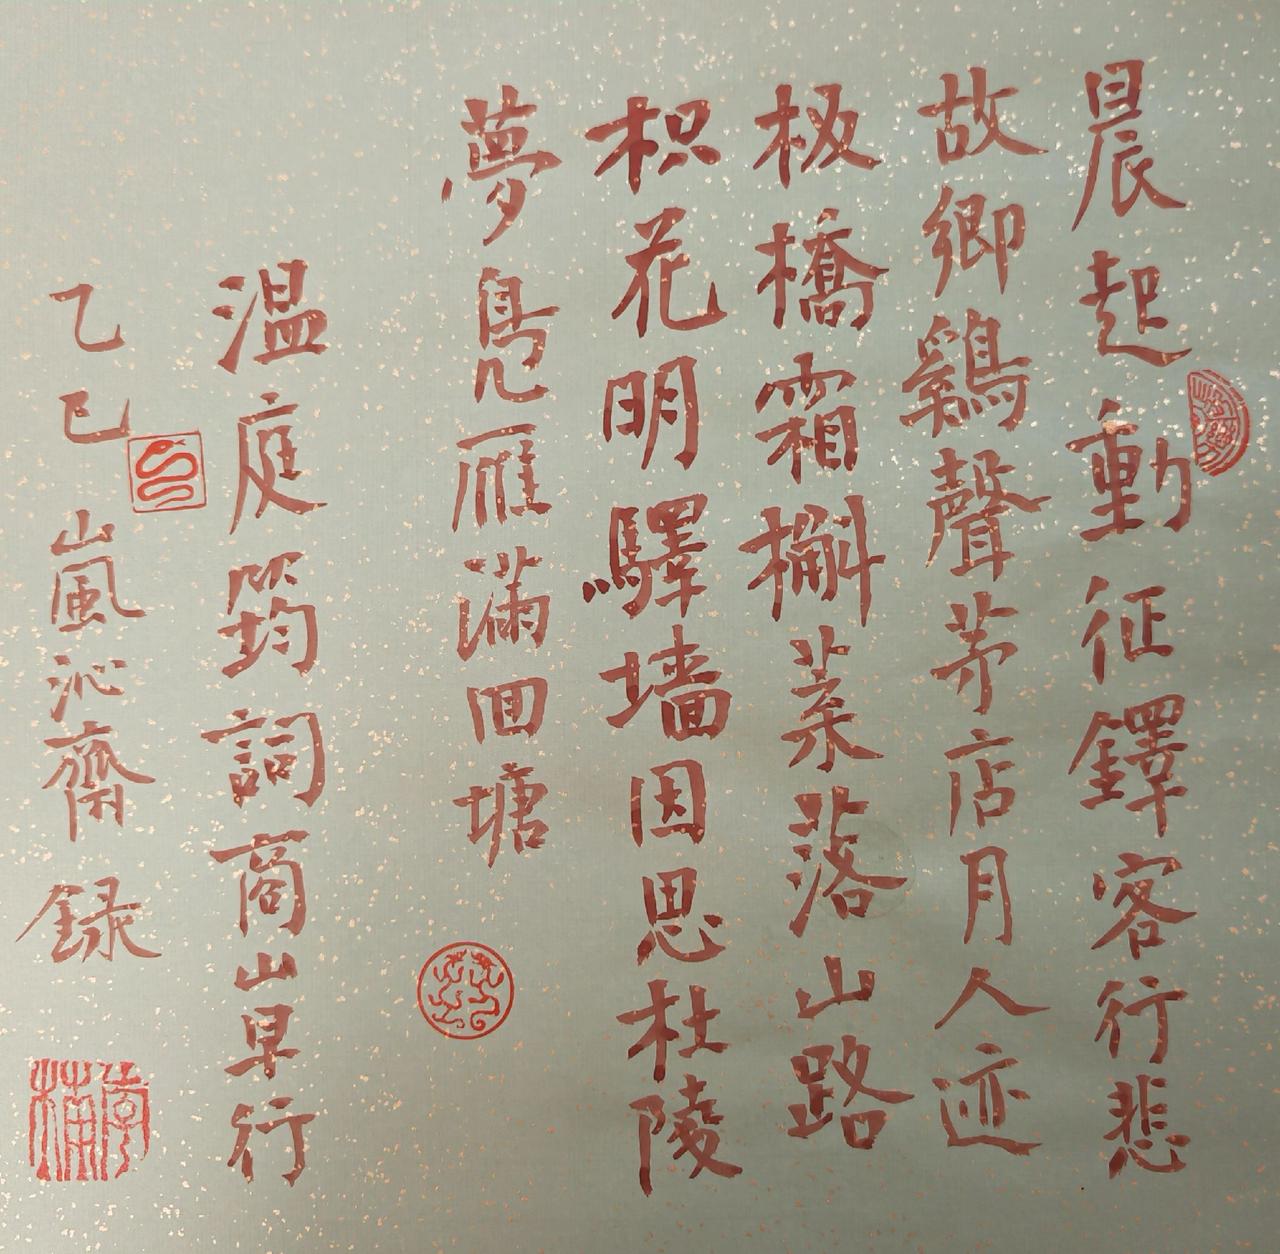 晨起動征鐸客行悲
故鄉鷄聲茅店月人迹
板橋霜槲葉落山路
枳花明驛墙因思杜陵
夢鳧雁滿回塘
温庭筠詞商山早行
乙巳嵐沁齋録